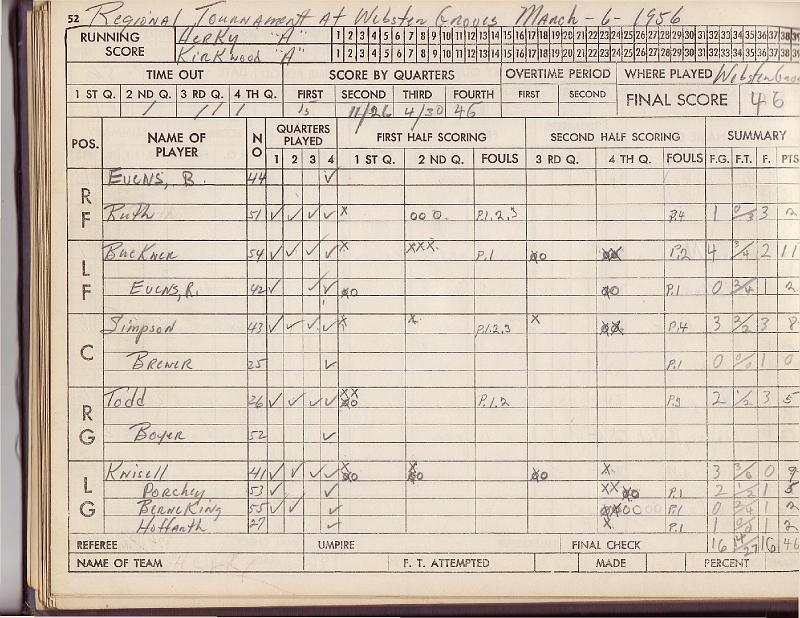 52 Regional Tournament At Webster Groves March - 6 - 1956
RUNNING SCORE
Herky "A" 1 2 3 4 5 6 7 8 9 10 11 12 13 14 15 16 17 18 19 20 21 22 23 24 25 26 27 28 29 30 31 32 33 34 35 36 37 38 39
Kirkwood "A" 1 2 3 4 5 6 7 8 9 10 11 12 13 14 15 16 17 18 19 20 21 22 23 24 25 26 27 28 29 30 31 32 33 34 35 36 37 38 39
TIME OUT SCORE BY QUARTERS OVERTIME PERIOD WHERE PLAYED Webster
1 ST Q. 2 ND Q. 3 RD Q. 4 TH Q. FIRST SECOND THIRD FOURTH FIRST SECOND FINAL SCORE 46
15 11/26 4/30 46
POS. NAME OF PLAYER NO QUARTERS PLAYED FIRST HALF SCORING SECOND HALF SCORING SUMMARY
1 2 3 4 1 ST Q. 2 ND Q. FOULS 3 RD Q. 4 TH Q. FOULS F.G. F.T. F. PTS
RF
Evens, B. 44 ✓
Ruth 51 ✓ ✓ ✓ ✓ x 000 P.1,2,3 P.4 1 0/3 3 2
LF
Buckner 54 ✓ ✓ ✓ ✓ x xxx P.1 P.2 4 3/4 2 11
Evens, R. 42 ✓ ✓ ✓ P.1 0 1 2
C
Simpson 43 ✓ ✓ ✓ ✓ x x P.1,2,3 x P.4 3 2/2 3 8
Brewer 25 ✓ P.1 0 0/0 1 0
RG
Todd 26 ✓ ✓ ✓ ✓ xx P.1,2 P.3 2 1/2 3 5
Boyer 52 ✓
LG
Knisell 41 ✓ ✓ ✓ ✓ x x x 3 3/6 0 9
Porchey 53 ✓ ✓ xx P.1 2 1/2 1 5
Berneking 55 ✓ ✓ ✓ P.1 0 1 2
Hoffarth 27 ✓ x P.1 1 0/0 1 2
REFEREE UMPIRE FINAL CHECK 16 14/27 16 46
NAME OF TEAM F. T. ATTEMPTED MADE PERCENT